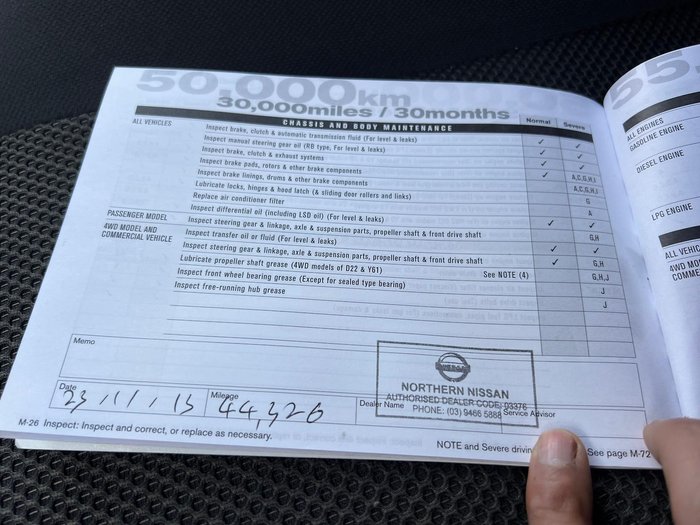 50,000km
30,000miles / 30months
CHASSIS AND BODY MAINTENANCE Normal Severe
ALL VEHICLES Inspect brake, clutch & automatic transmission fluid (For level & leaks) ✓ ✓
Inspect manual steering gear oil (RB type, For level & leaks) ✓ ✓
Inspect brake, clutch & exhaust systems ✓ ✓
Inspect brake pads, rotors & other brake components ✓ A,C,G,H,I
Inspect brake linings, drums & other brake components A,C,G,H,I
Lubricate locks, hinges & hood latch (& sliding door rollers and links) G
Replace air conditioner filter A
Inspect differential oil (including LSD oil) (For level & leaks) ✓ ✓
PASSENGER MODEL Inspect steering gear & linkage, axle & suspension parts, propeller shaft & front drive shaft G,H
4WD MODEL AND Inspect transfer oil or fluid (For level & leaks) ✓ ✓
COMMERCIAL VEHICLE Inspect steering gear & linkage, axle & suspension parts, propeller shaft & front drive shaft ✓ G,H
Lubricate propeller shaft grease (4WD models of D22 & Y61) See NOTE (4) G,H,J
Inspect front wheel bearing grease (Except for sealed type bearing) J
Inspect free-running hub grease J
Memo
NISSAN
NORTHERN NISSAN
AUTHORISED DEALER CODE: 03376
PHONE: (03) 9466 5888
Date 23/11/13 Mileage 44,326 Dealer Name Service Advisor
M-26 Inspect: Inspect and correct, or replace as necessary. NOTE and Severe drivin See page M-72
55,
ALL ENGINES
GASOLINE ENGINE
DIESEL ENGINE
LPG ENGINE
ALL VEHIC
4WD MO
COMME